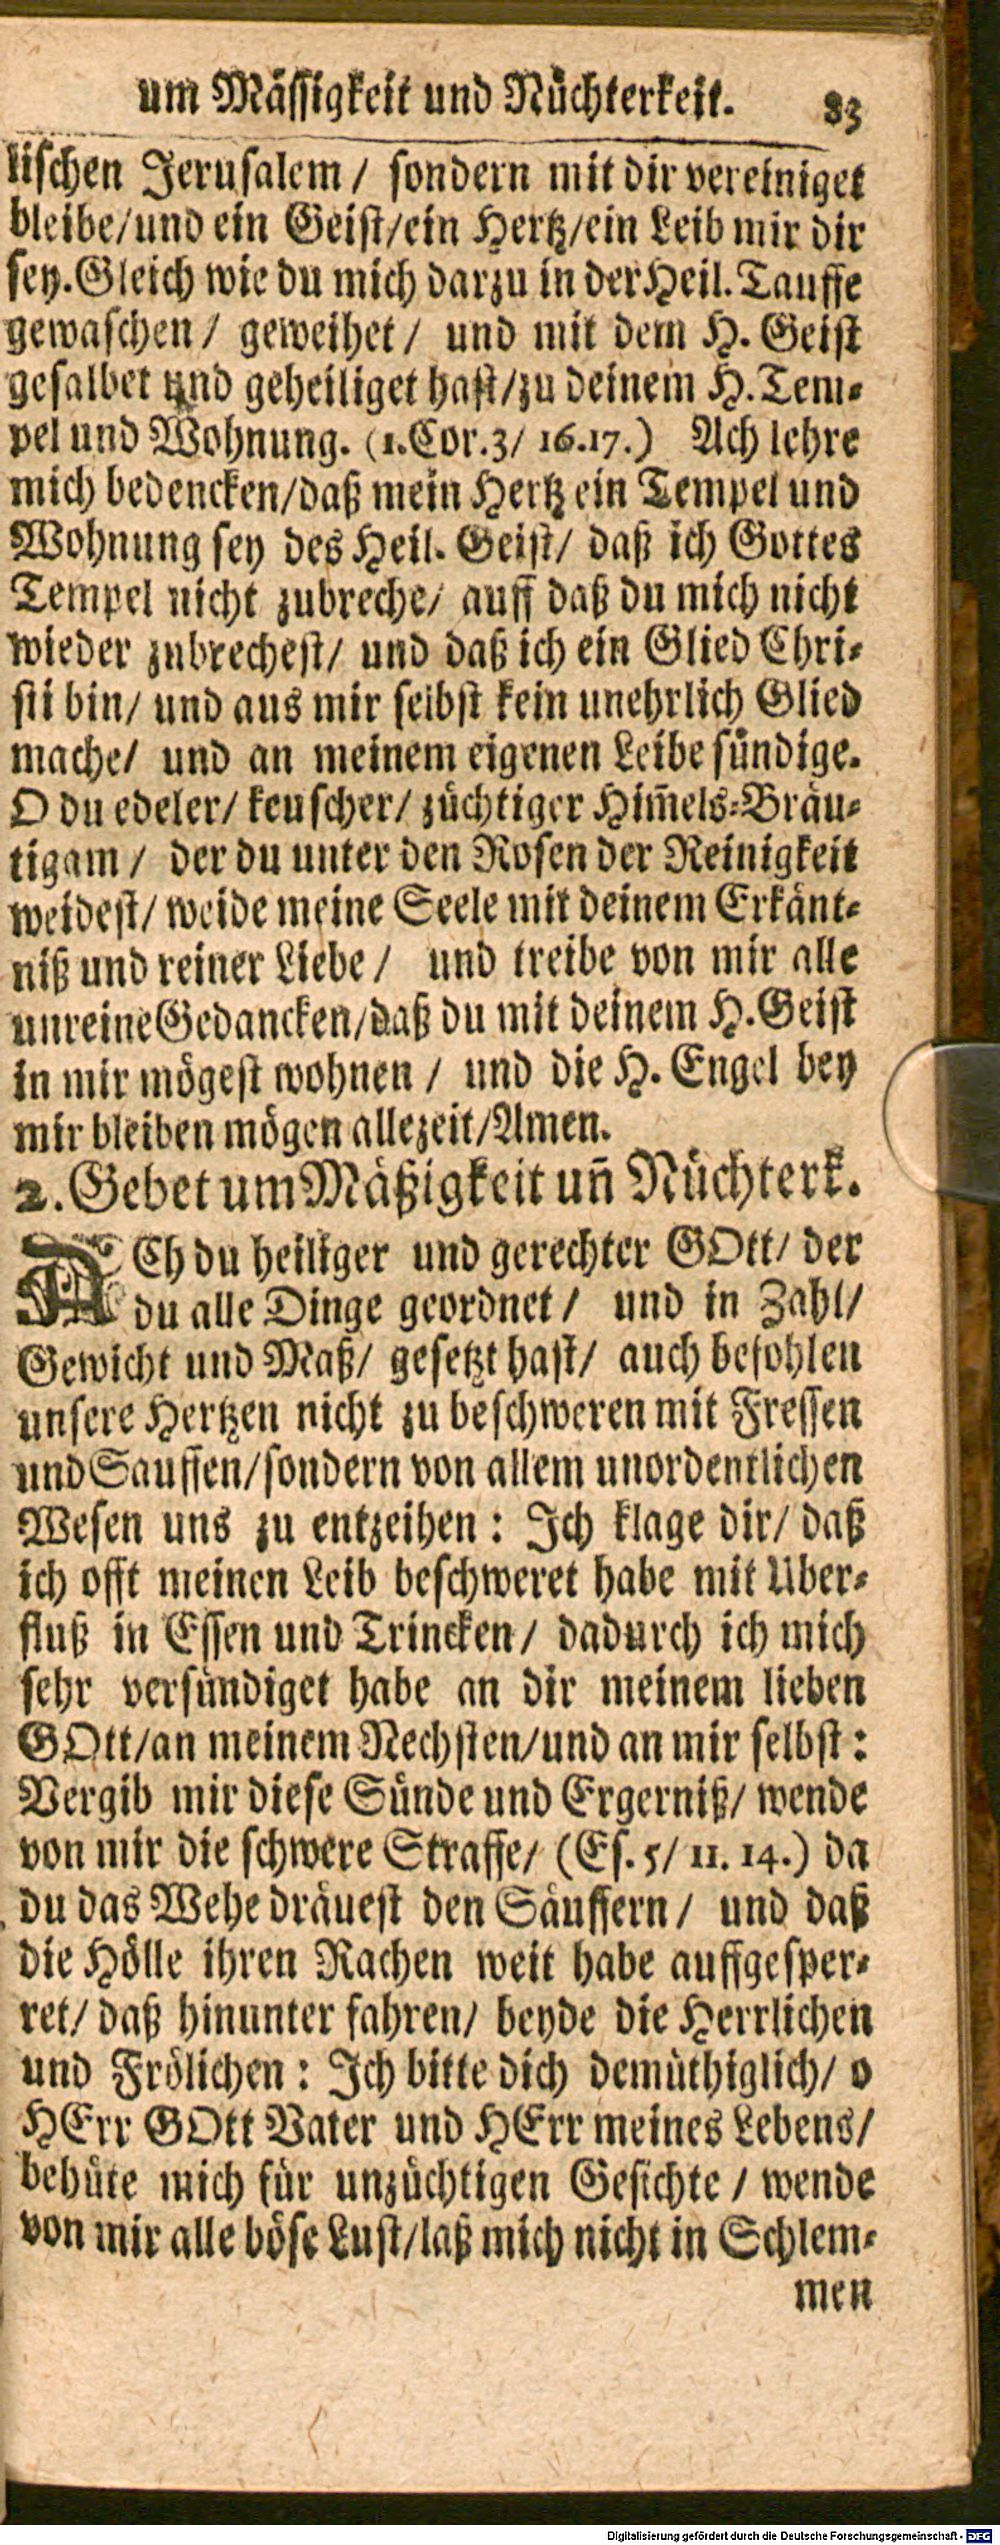 um Mässigkeit und Nüchterkeit. 83
lischen Jerusalem / sondern mit dir vereiniget
bleibe/und ein Geist/ein Hertz/ein Leib mir dir
sey. Gleich wie du mich darzu in der Heil. Tauffe
gewaschen / geweihet / und mit dem H. Geist
gesalbet und geheiliget hast/zu deinem H. Tem-
pel und Wohnung. (1. Cor. 3/ 16. 17.) Ach lehre
mich bedencken/daß mein Hertz ein Tempel und
Wohnung sey des Heil. Geist/ daß ich Gottes
Tempel nicht zubreche/ auff daß du mich nicht
wieder zubrechest/ und daß ich ein Glied Chri-
sti bin/ und aus mir selbst kein unehrlich Glied
mache/ und an meinem eigenen Leibe sündige.
O du edeler/ keuscher/ züchtiger Him̃els-Bräu-
tigam / der du unter den Rosen der Reinigkeit
weidest/ weide meine Seele mit deinem Erkänt-
niß und reiner Liebe / und treibe von mir alle
unreine Gedancken/daß du mit deinem H. Geist
in mir mögest wohnen / und die H. Engel bey
mir bleiben mögen allezeit/Amen.
2. Gebet um Mäßigkeit un̄ Nüchterk.
ACh du heiliger und gerechter GOtt/ der
du alle Dinge geordnet / und in Zahl/
Gewicht und Maß/ gesetzt hast/ auch befohlen
unsere Hertzen nicht zu beschweren mit Fressen
und Sauffen/sondern von allem unordentlichen
Wesen uns zu entzeihen : Ich klage dir/ daß
ich offt meinen Leib beschweret habe mit Uber-
fluß in Essen und Trincken / dadurch ich mich
sehr versündiget habe an dir meinem lieben
GOtt/an meinem Nechsten/und an mir selbst :
Vergib mir diese Sünde und Ergerniß/ wende
von mir die schwere Straffe/ (Es. 5/ 11. 14.) da
du das Wehe dräuest den Säuffern / und daß
die Hölle ihren Rachen weit habe auffgesper-
ret/ daß hinunter fahren/ beyde die Herrlichen
und Frölichen : Ich bitte dich demüthiglich/ o
HErr GOtt Vater und HErr meines Lebens/
behüte mich für unzüchtigen Gesichte / wende
von mir alle böse Lust/laß mich nicht in Schlem-
men
Digitalisierung gefördert durch die Deutsche Forschungsgemeinschaft - DFG